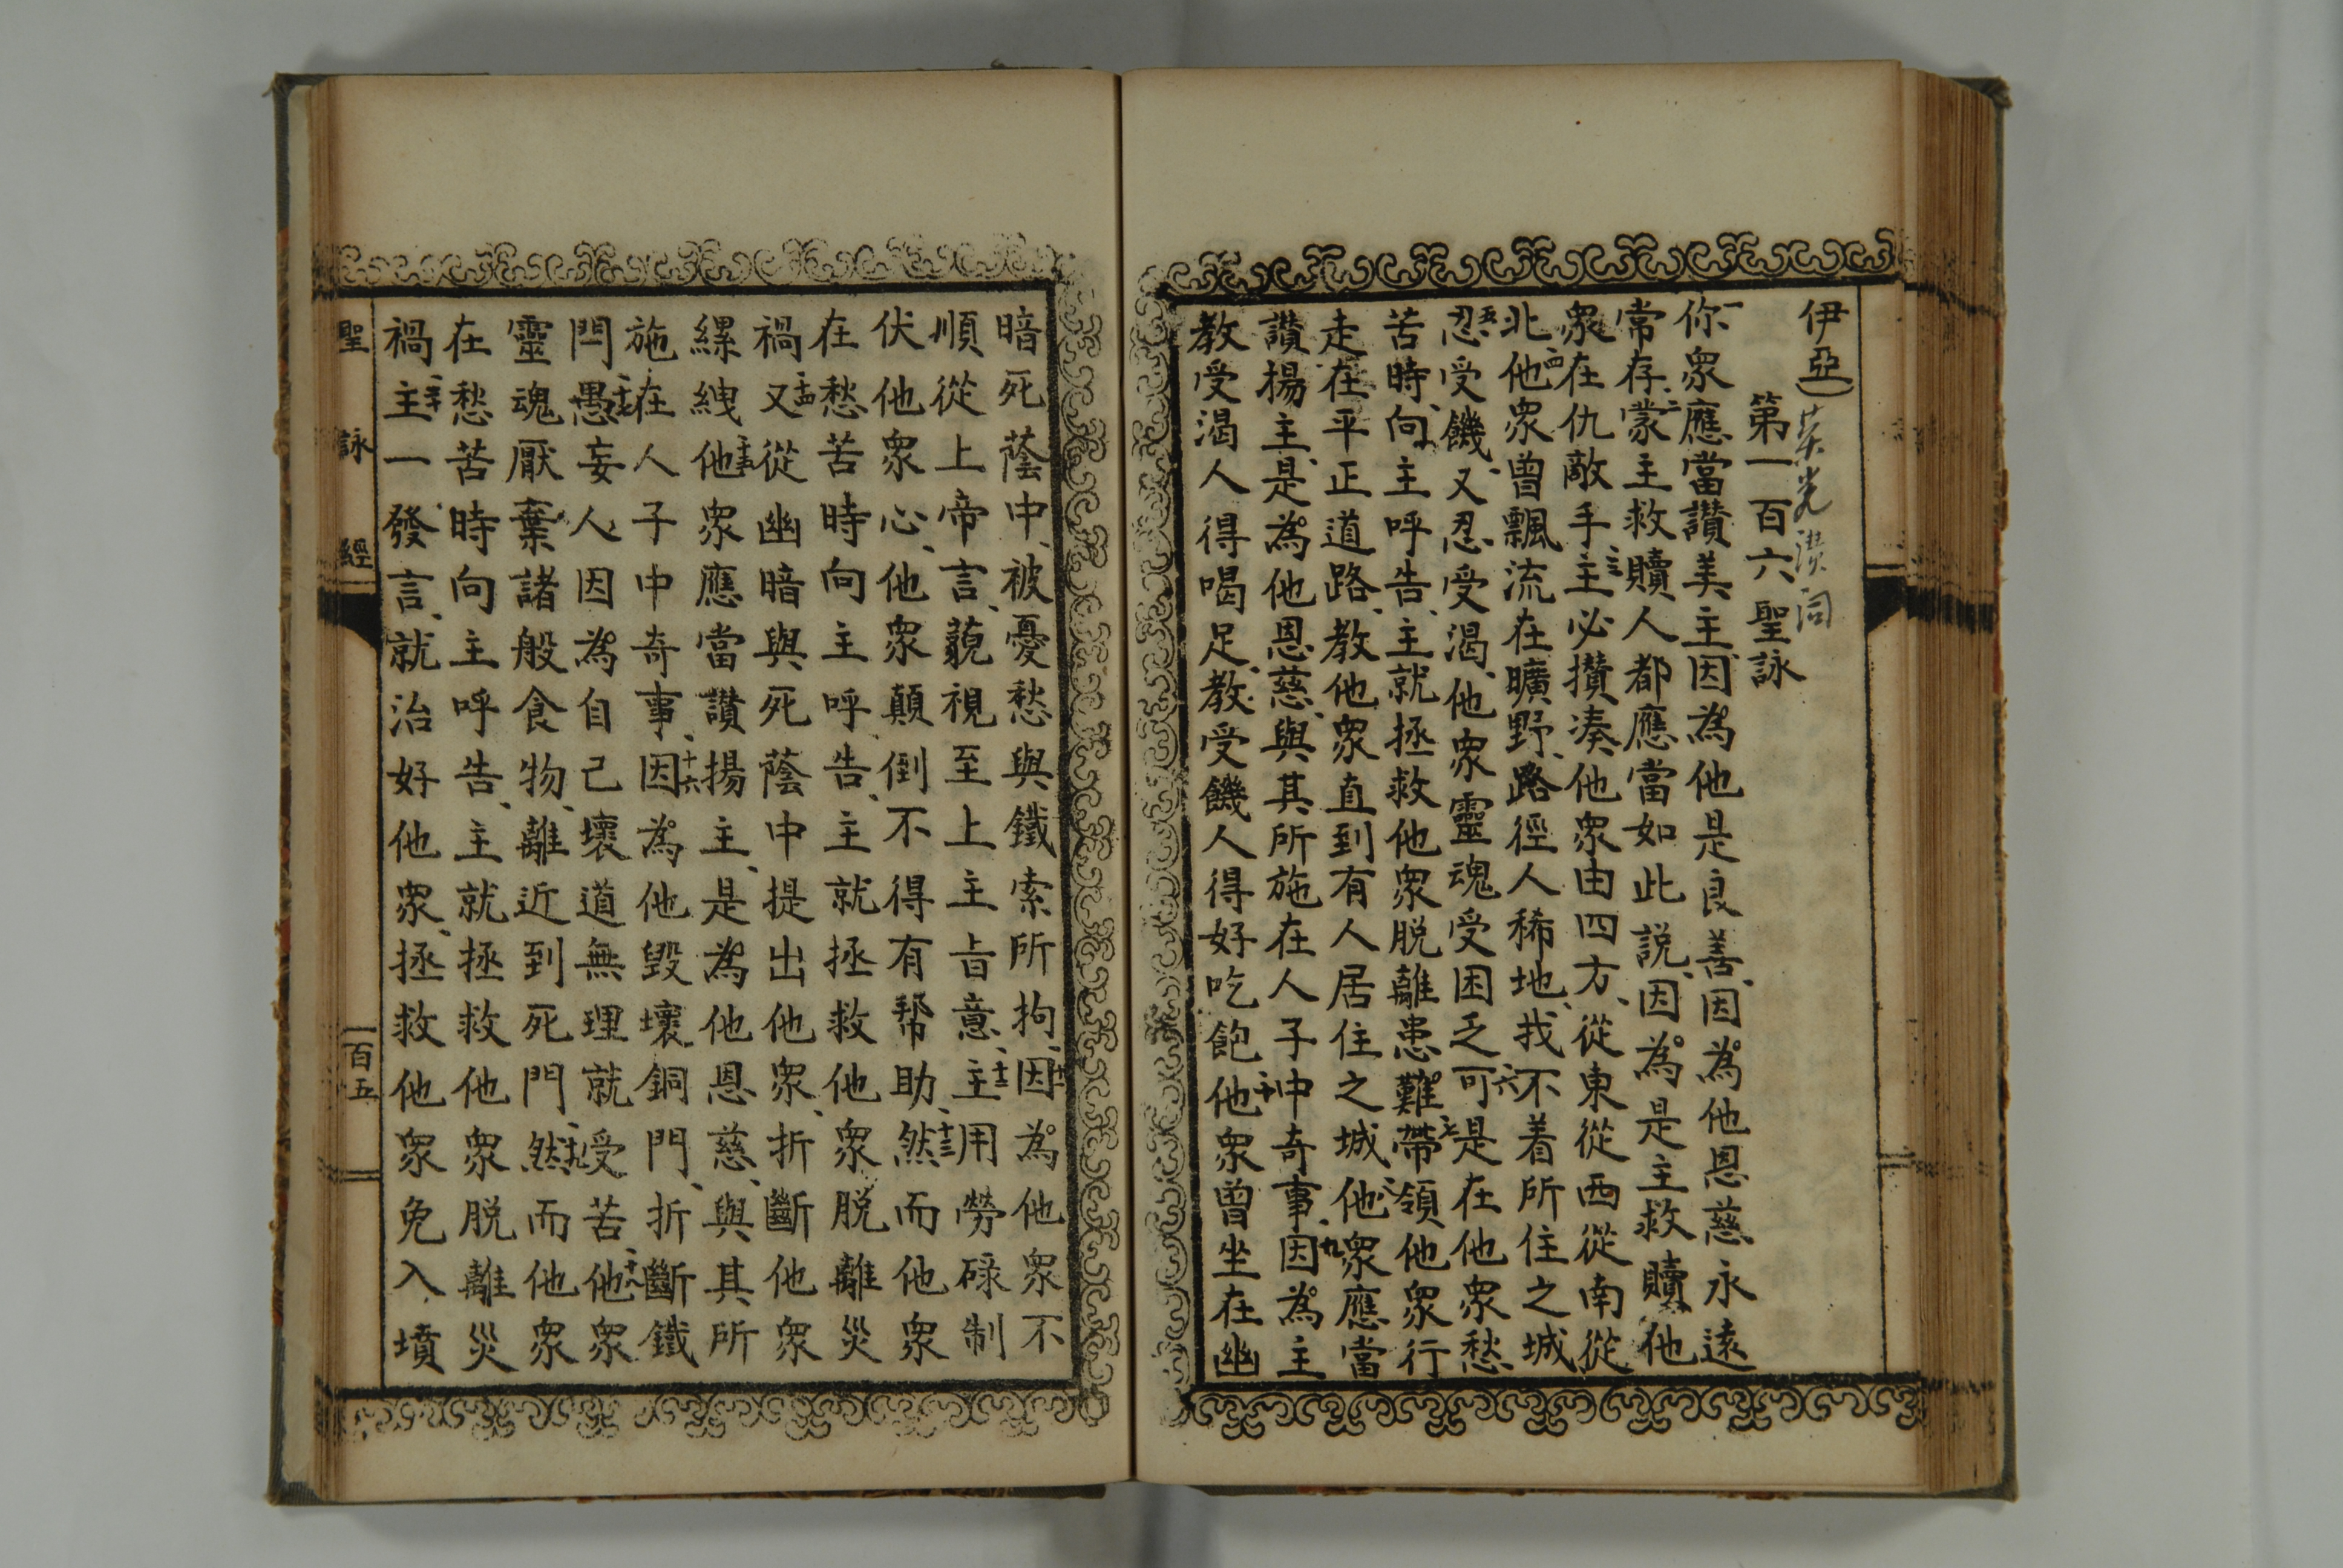 伊亞
第一百六聖詠
一你衆應當讃美主、因爲他是良善、因爲他恩慈永遠
常存、二蒙主救贖人都應當如此説、因爲是主救贖他
衆在仇敵手、三主必攢凑他衆由四方、從東從西從南從
北、四他衆曾飄流在曠野、路徑人稀地、找不着所住之城
五忍受饑、又忍受渴、他衆靈魂受困乏、六可是在他衆愁
苦時、向主呼告、主就拯救他衆脱離患難、七帶領他衆行
走在平正道路、教他衆直到有人居住之城、八他衆應當
讃揚主、是爲他恩慈、與其所施在人子中奇事、九因爲主
教受渴人得喝足、教受饑人得好吃飽、十他衆曾坐在幽
暗死蔭中、被憂愁與鐵索所拘、十一因爲他衆不
順從上帝言、藐視至上主㫖意、十二主用勞碌制
伏他衆心、他衆顛倒不得有帮助、十三然而他衆
在愁苦時向主呼告、主就拯救他衆脱離災
禍、十四又從幽暗與死蔭中提出他衆、折斷他衆
縲絏、十五他衆應當讃揚主、是爲他恩慈、與其所
施在人子中奇事、十六因爲他毀壞銅門、折斷鐵
閂、十七愚妄人因爲自己壞道無理就受苦、十八他衆
靈魂厭棄諸般食物、離近到死門、十九然而他衆
在愁苦時向主呼告、主就拯救他衆脱離災
禍、二十主一發言、就治好他衆、拯救他衆免入墳
聖詠經
一百五